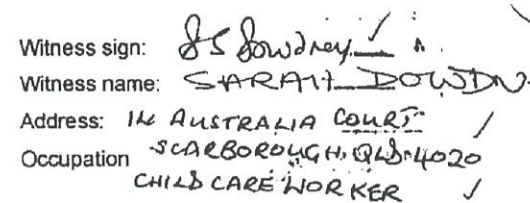 Witness sign: SS Dowdney
Witness name: SARAH DOWDN
Address: 14 AUSTRALIA COURT
Occupation SCARBOROUGH, QLD 4020
CHILD CARE WORKER